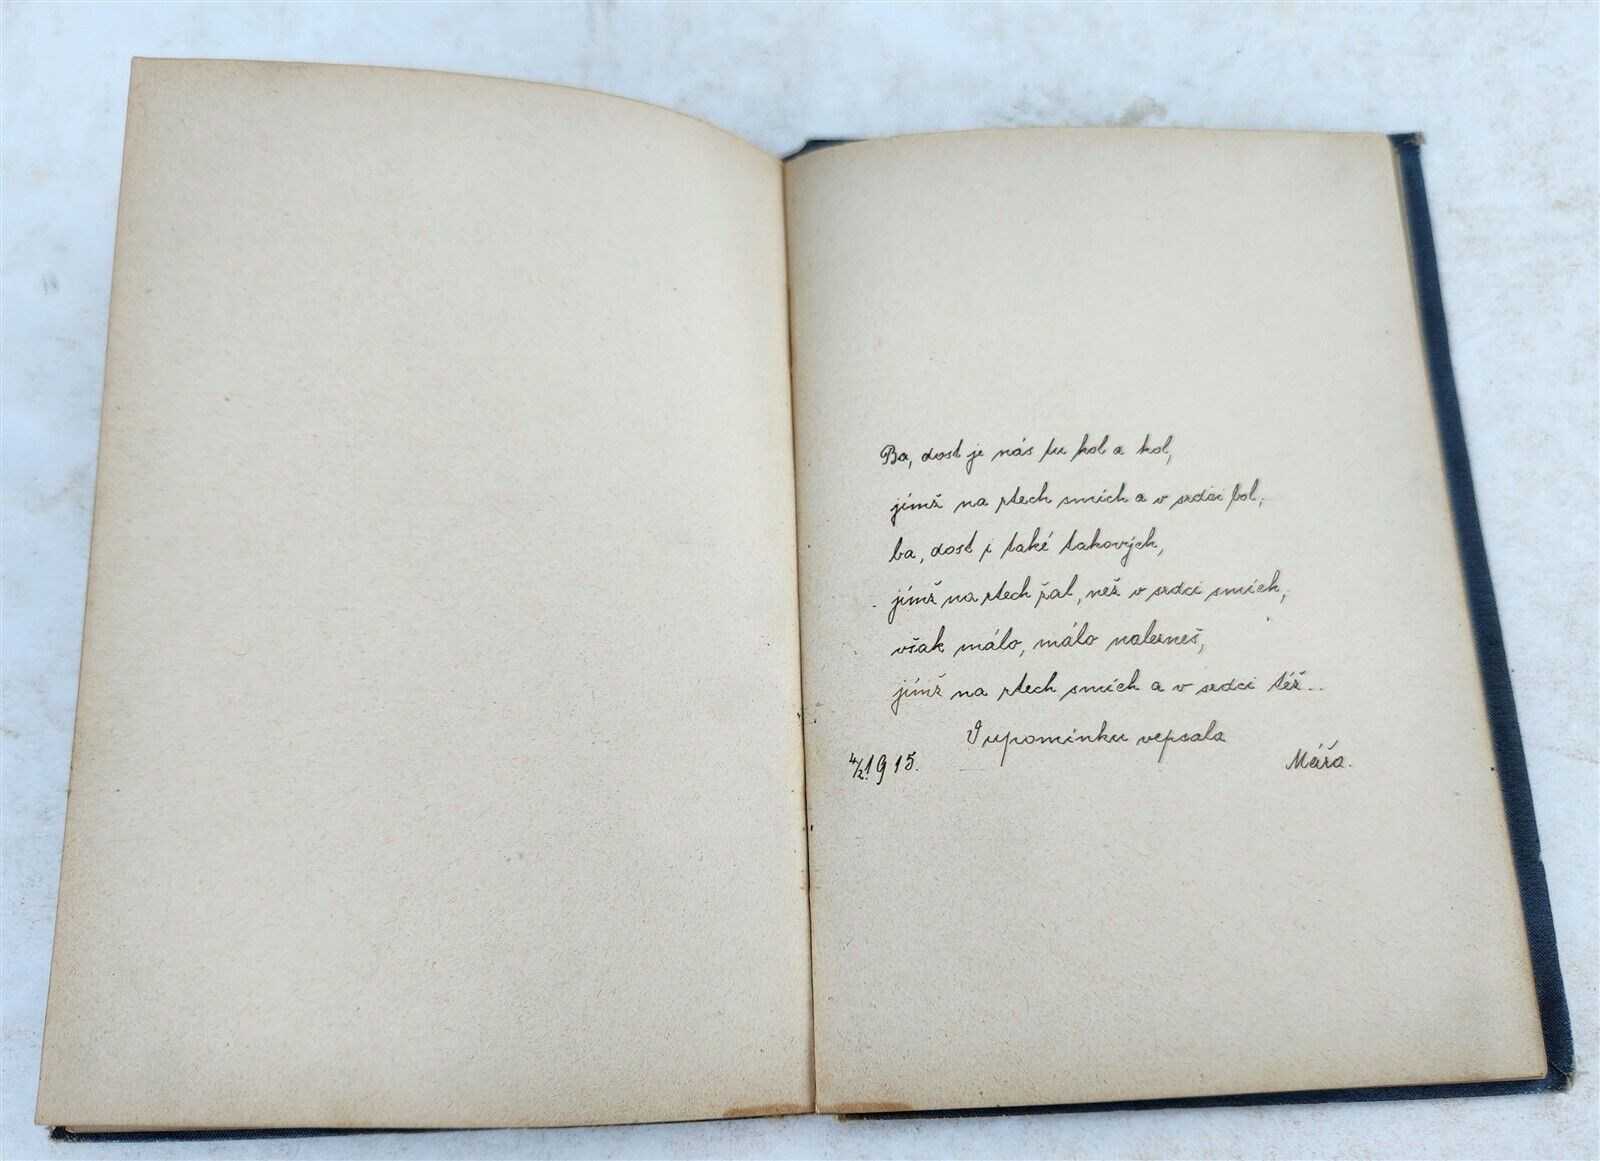 Ba, dost je nás tu kol a kol,
jimž na rtech smích a v srdci bol,
ba, dost i také takových,
jimž na rtech žal, než v srdci smích,
však málo, málo nalezneš,
jimž na rtech smích a v srdci též..
V upomínku vepsala
4/2 1915. Máňa.